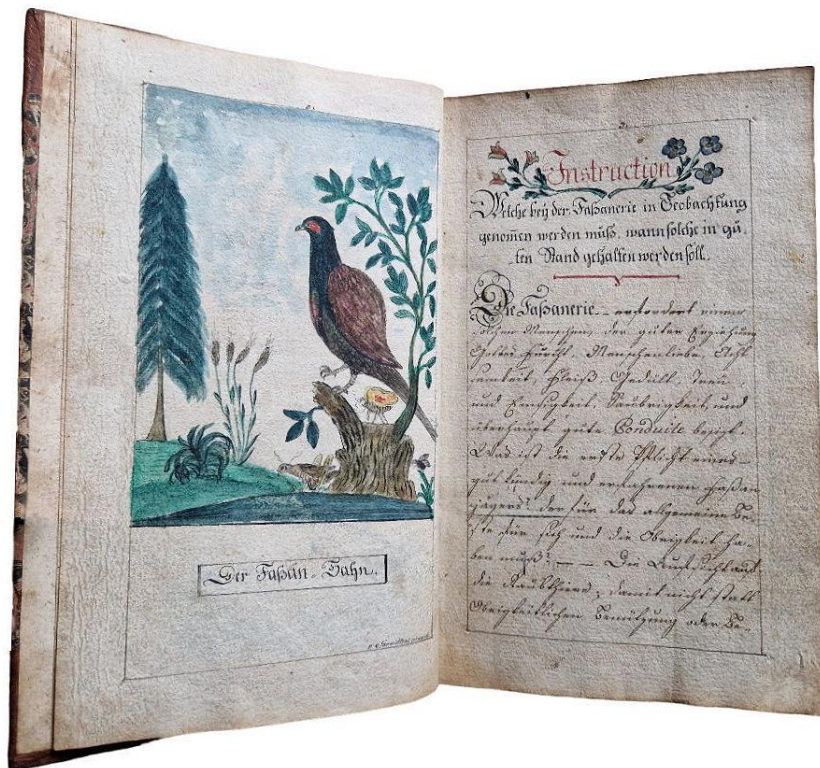 Der Faßan-Hahn.
Instruction
Welche beÿ der Faßanerie in Beobachtung
genom̅en werden müß, wann solche in gu-
ten Stand gehalten werden soll.
Die Faßanerie erfordert einen
solchen Menschen, der guter Erziehung
Gottes Furcht, Menschenliebe, Acht
samkeit, Fleiß, Gedult, Treu
und Emsigkeit, Saubrigkeit, und
überhaupt gute Conduite besizt.
Was ist die erste Pflicht eines
gut kündig und erfahrenen Faßan
jägers? der für das allgemeine Be-
ste für sich und die Obrigkeit ha-
ben muß? — Die Aufsicht auf
die Raubthiere, damit nicht statt
Obrigkeitlichen Benutzung oder Be-